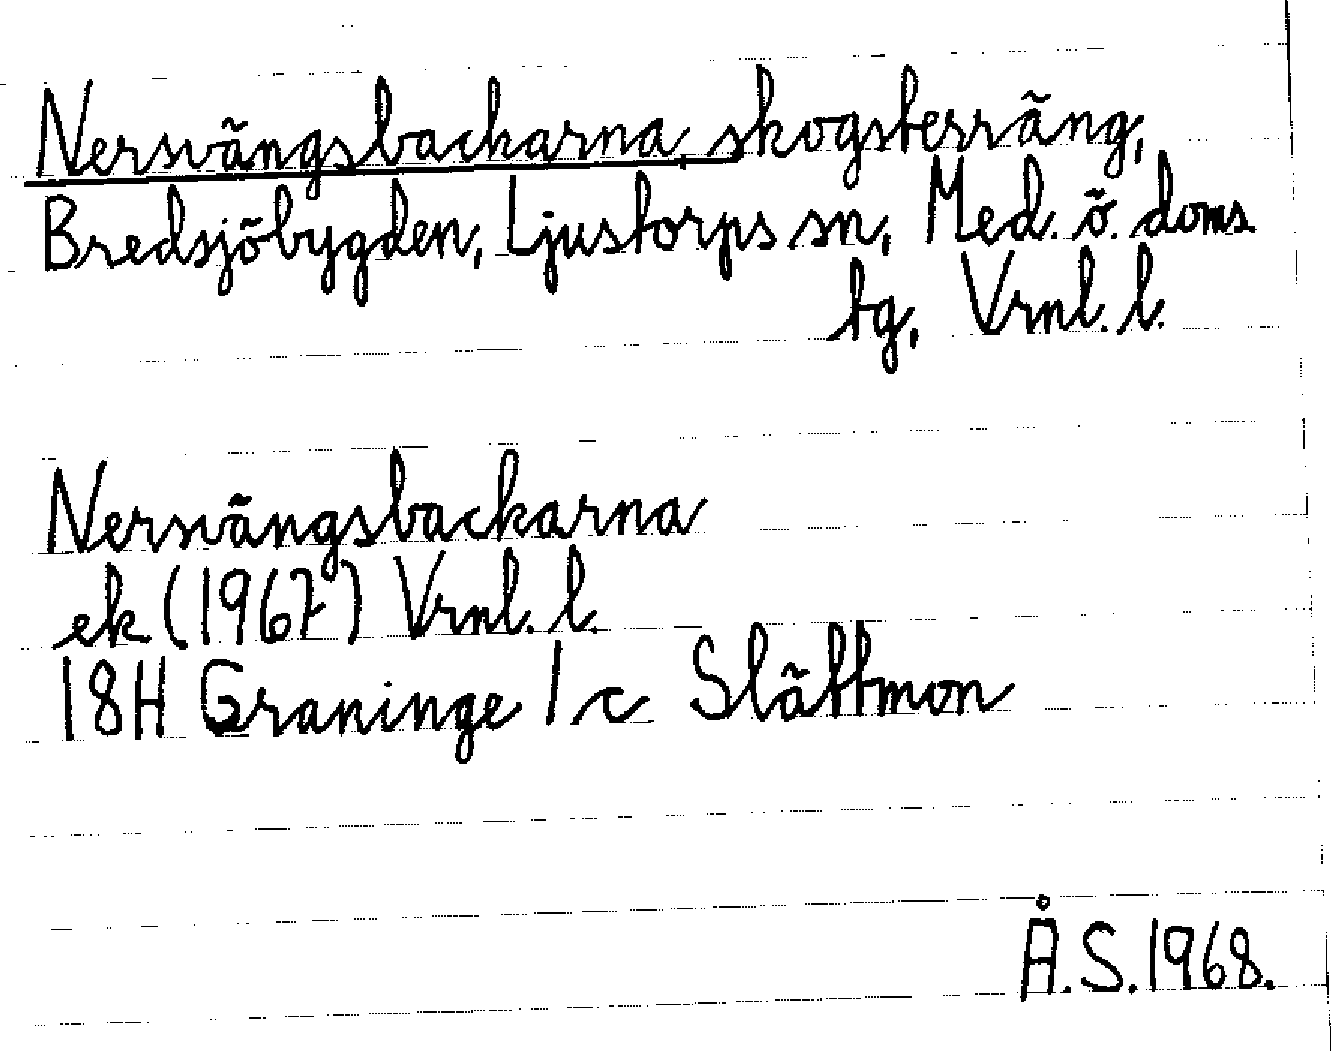 Nersvängsbackarna, skogsterräng,
Bredsjöbygden, Ljustorps sn, Med. ö. doms.
tg, Vrnl. l.
Nersvängsbackarna
ek (1967) Vrnl. l.
18H Graninge 1 c Slättmon
Å.S. 1968.